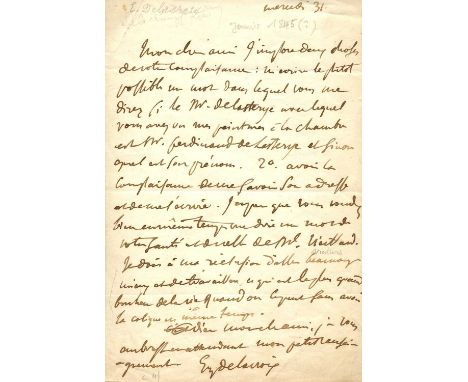 E. Delacroix
mercredi 31.
Janvier 1845 (?)
Mon cher ami J'implore deux choses
de votre complaisance : m'écrire le plutot
possible un mot dans lequel vous me
direz si le Mr. de Lasteyrie avec lequel
vous avez vu mes peintures à la chambre
est Mr. ferdinand de Lasteyrie et sinon
quel est son prénom. 2o. avoir la
complaisance de me savoir son adresse
et de me l'écrire. J'espère que vous voudrez
bien en même temps me dire un mot de
votre santé et de celle de Me. Vieillard.
Je dois à une réclusion d'aller beaucoup
mieux et de travailler, ce qui est le plus grand
bonheur de la vie quand on le peut faire avoir
la colique en même temps.
Adieu mon cher ami, je vous
embrasse en attendant mon petit rensei-
-gnement
Eug Delacroix